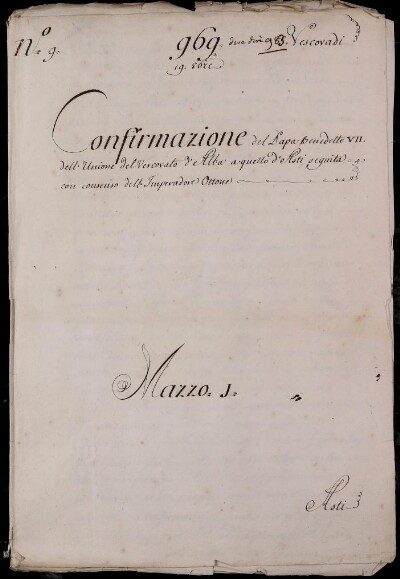 n.º 9.
969. deve dir 983. Vescovadi
19. 9bre
Confirmazione del Papa Benedetto VII.
dell'Unione del Vescovato d'Alba a quello d'Asti seguita
con consenso dell'Imperadore Ottone
Mazzo. 1. "
Asti